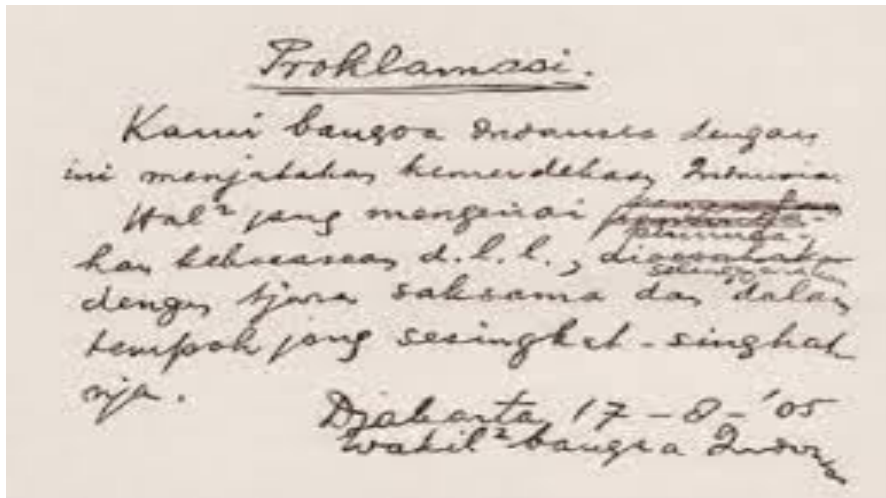 Proklamasi.
Kami bangsa Indonesia dengan
ini menjatakan kemerdekaan Indonesia.
Hal² jang mengenai pemindah-
kan kekoeasaan d.l.l., diselenggarakan
dengan tjara saksama dan dalam
tempoh jang sesingkat-singkat
nja.
Djakarta 17 - 8 - '05
Wakil² bangsa Indonesia